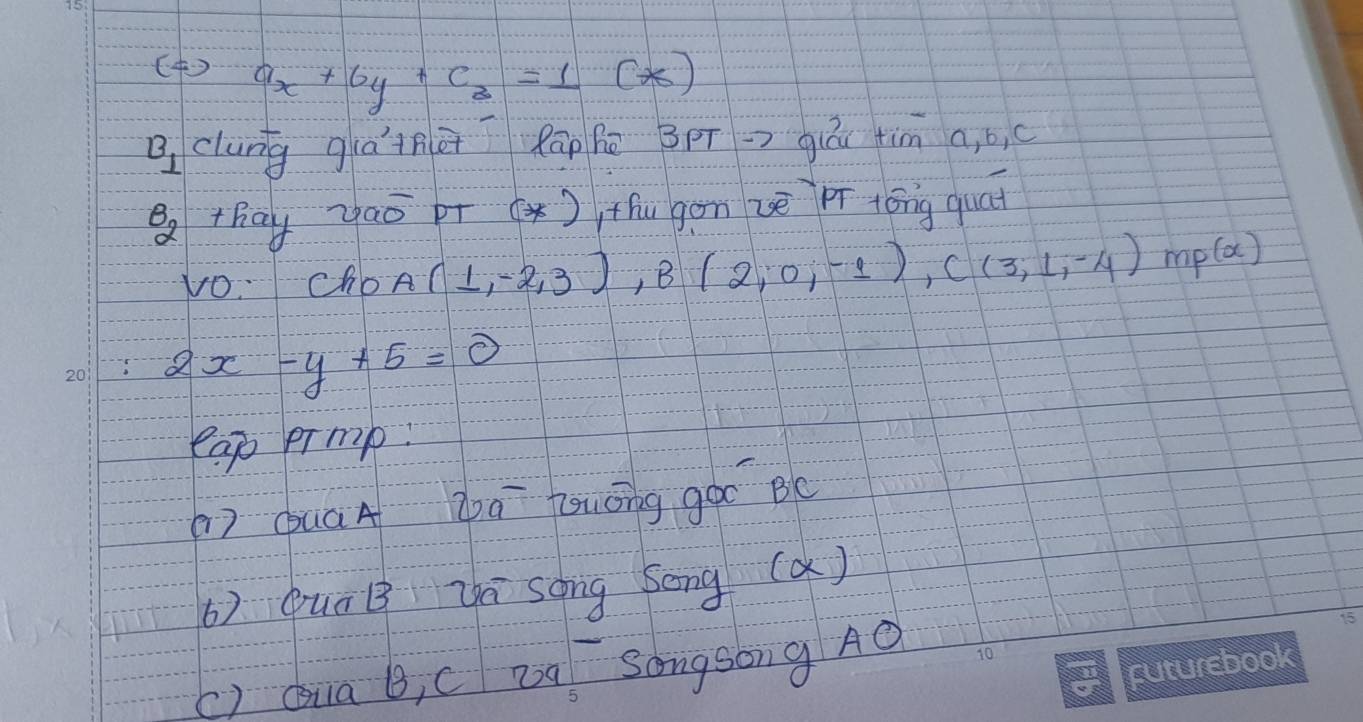 15
(+) ax + by + cz = 1 (*)
B1 dùng giả thiết lập hệ 3PT -> giải tìm a, b, c
B2 thay vào PT (*), thu gọn về PT tổng quát
VD: Cho A(1,-2,3), B(2,0,-1), C(3,1,-4) mp(α)
20 : 2x - y + 5 = 0
lập PT mp:
a) qua A và vuông góc BC
b) qua B và song song (α)
c) qua B, C và song song AO
5 10 15
FUTUREBOOK